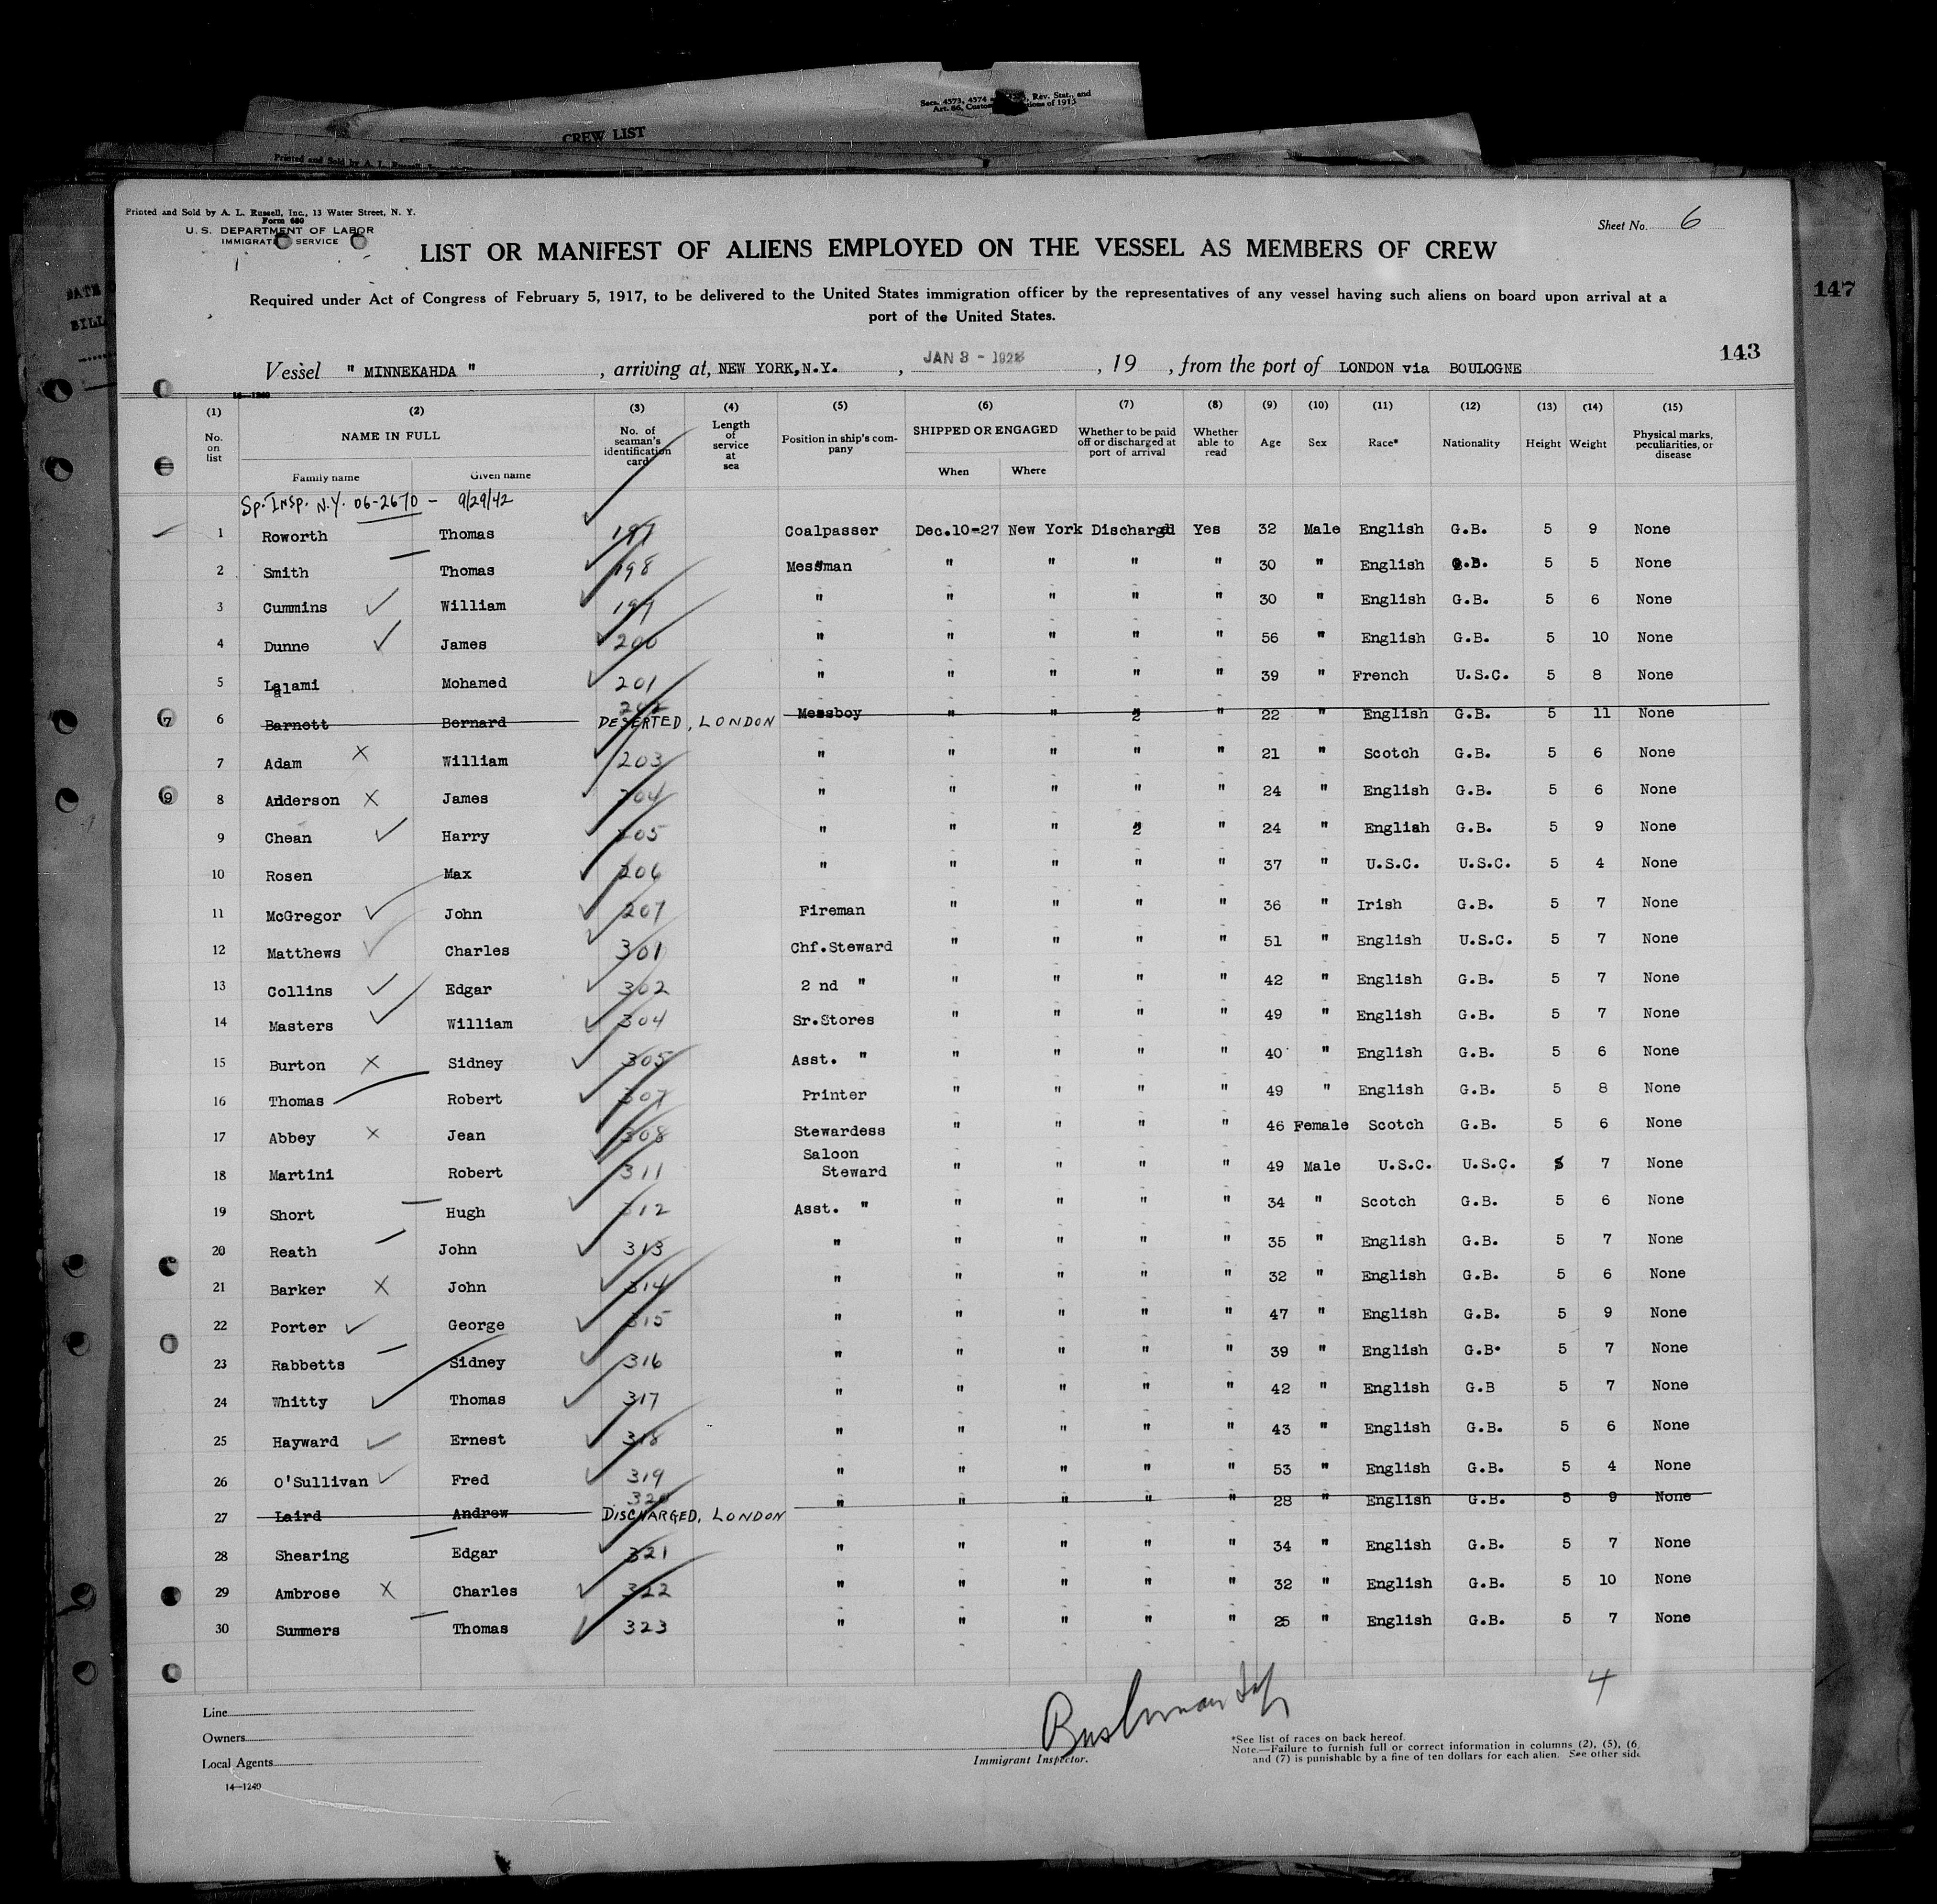 Secs. 4573, 4574 Rev. Stat., and
Art. 86, Customs of 1915
CREW LIST
Printed and Sold by A. L. Russell,
Printed and Sold by A. L. Russell, Inc., 13 Water Street, N. Y.
Form 680
U. S. DEPARTMENT OF LABOR
IMMIGRAT SERVICE
Sheet No. 6
LIST OR MANIFEST OF ALIENS EMPLOYED ON THE VESSEL AS MEMBERS OF CREW
147
Required under Act of Congress of February 5, 1917, to be delivered to the United States immigration officer by the representatives of any vessel having such aliens on board upon arrival at a
port of the United States.
DATE
BILL
143
Vessel " MINNEKAHDA " , arriving at, NEW YORK,N.Y. , JAN 3 - 1928 , 19 , from the port of LONDON via BOULOGNE
(1) (2) (3) (4) (5) (6) (7) (8) (9) (10) (11) (12) (13) (14) (15)
No. on list NAME IN FULL No. of seaman's identification card Length of service at sea Position in ship's company SHIPPED OR ENGAGED Whether to be paid off or discharged at port of arrival Whether able to read Age Sex Race* Nationality Height Weight Physical marks, peculiarities, or disease
Family name Given name When Where
Sp. Insp. N.Y. 06-2670 - 9/29/42
1 Roworth Thomas 197 Coalpasser Dec.10-27 New York Discharged Yes 32 Male English G.B. 5 9 None
2 Smith Thomas 198 Messman " " " " 30 " English G.B. 5 5 None
3 Cummins William 199 " " " " " 30 " English G.B. 5 6 None
4 Dunne James 200 " " " " " 56 " English G.B. 5 10 None
5 Lalami Mohamed 201 " " " " " 39 " French U.S.C. 5 8 None
6 Barnett Bernard 202 DESERTED, LONDON Messboy " " " " 22 " English G.B. 5 11 None
7 Adam William 203 " " " " " 21 " Scotch G.B. 5 6 None
8 Anderson James 204 " " " " " 24 " English G.B. 5 6 None
9 Chean Harry 205 " " " " " 24 " English G.B. 5 9 None
10 Rosen Max 206 " " " " " 37 " U.S.C. U.S.C. 5 4 None
11 McGregor John 207 Fireman " " " " 36 " Irish G.B. 5 7 None
12 Matthews Charles 301 Chf.Steward " " " " 51 " English U.S.C. 5 7 None
13 Collins Edgar 302 2 nd " " " " " 42 " English G.B. 5 7 None
14 Masters William 304 Sr.Stores " " " " 49 " English G.B. 5 7 None
15 Burton Sidney 305 Asst. " " " " " 40 " English G.B. 5 6 None
16 Thomas Robert 307 Printer " " " " 49 " English G.B. 5 8 None
17 Abbey Jean 308 Stewardess " " " " 46 Female Scotch G.B. 5 6 None
18 Martini Robert 311 Saloon Steward " " " " 49 Male U.S.C. U.S.C. 5 7 None
19 Short Hugh 312 Asst. " " " " " 34 " Scotch G.B. 5 6 None
20 Reath John 313 " " " " " 35 " English G.B. 5 7 None
21 Barker John 314 " " " " " 32 " English G.B. 5 6 None
22 Porter George 315 " " " " " 47 " English G.B. 5 9 None
23 Rabbetts Sidney 316 " " " " " 39 " English G.B. 5 7 None
24 Whitty Thomas 317 " " " " " 42 " English G.B 5 7 None
25 Hayward Ernest 318 " " " " " 43 " English G.B. 5 6 None
26 O'Sullivan Fred 319 " " " " " 53 " English G.B. 5 4 None
27 Laird Andrew 320 DISCHARGED, LONDON " " " " " 28 " English G.B. 5 9 None
28 Shearing Edgar 321 " " " " " 34 " English G.B. 5 7 None
29 Ambrose Charles 322 " " " " " 32 " English G.B. 5 10 None
30 Summers Thomas 323 " " " " " 25 " English G.B. 5 7 None
4
Line
Owners
Local Agents
14—1240
Immigrant Inspector.
*See list of races on back hereof.
Note.—Failure to furnish full or correct information in columns (2), (5), (6
and (7) is punishable by a fine of ten dollars for each alien. See other side